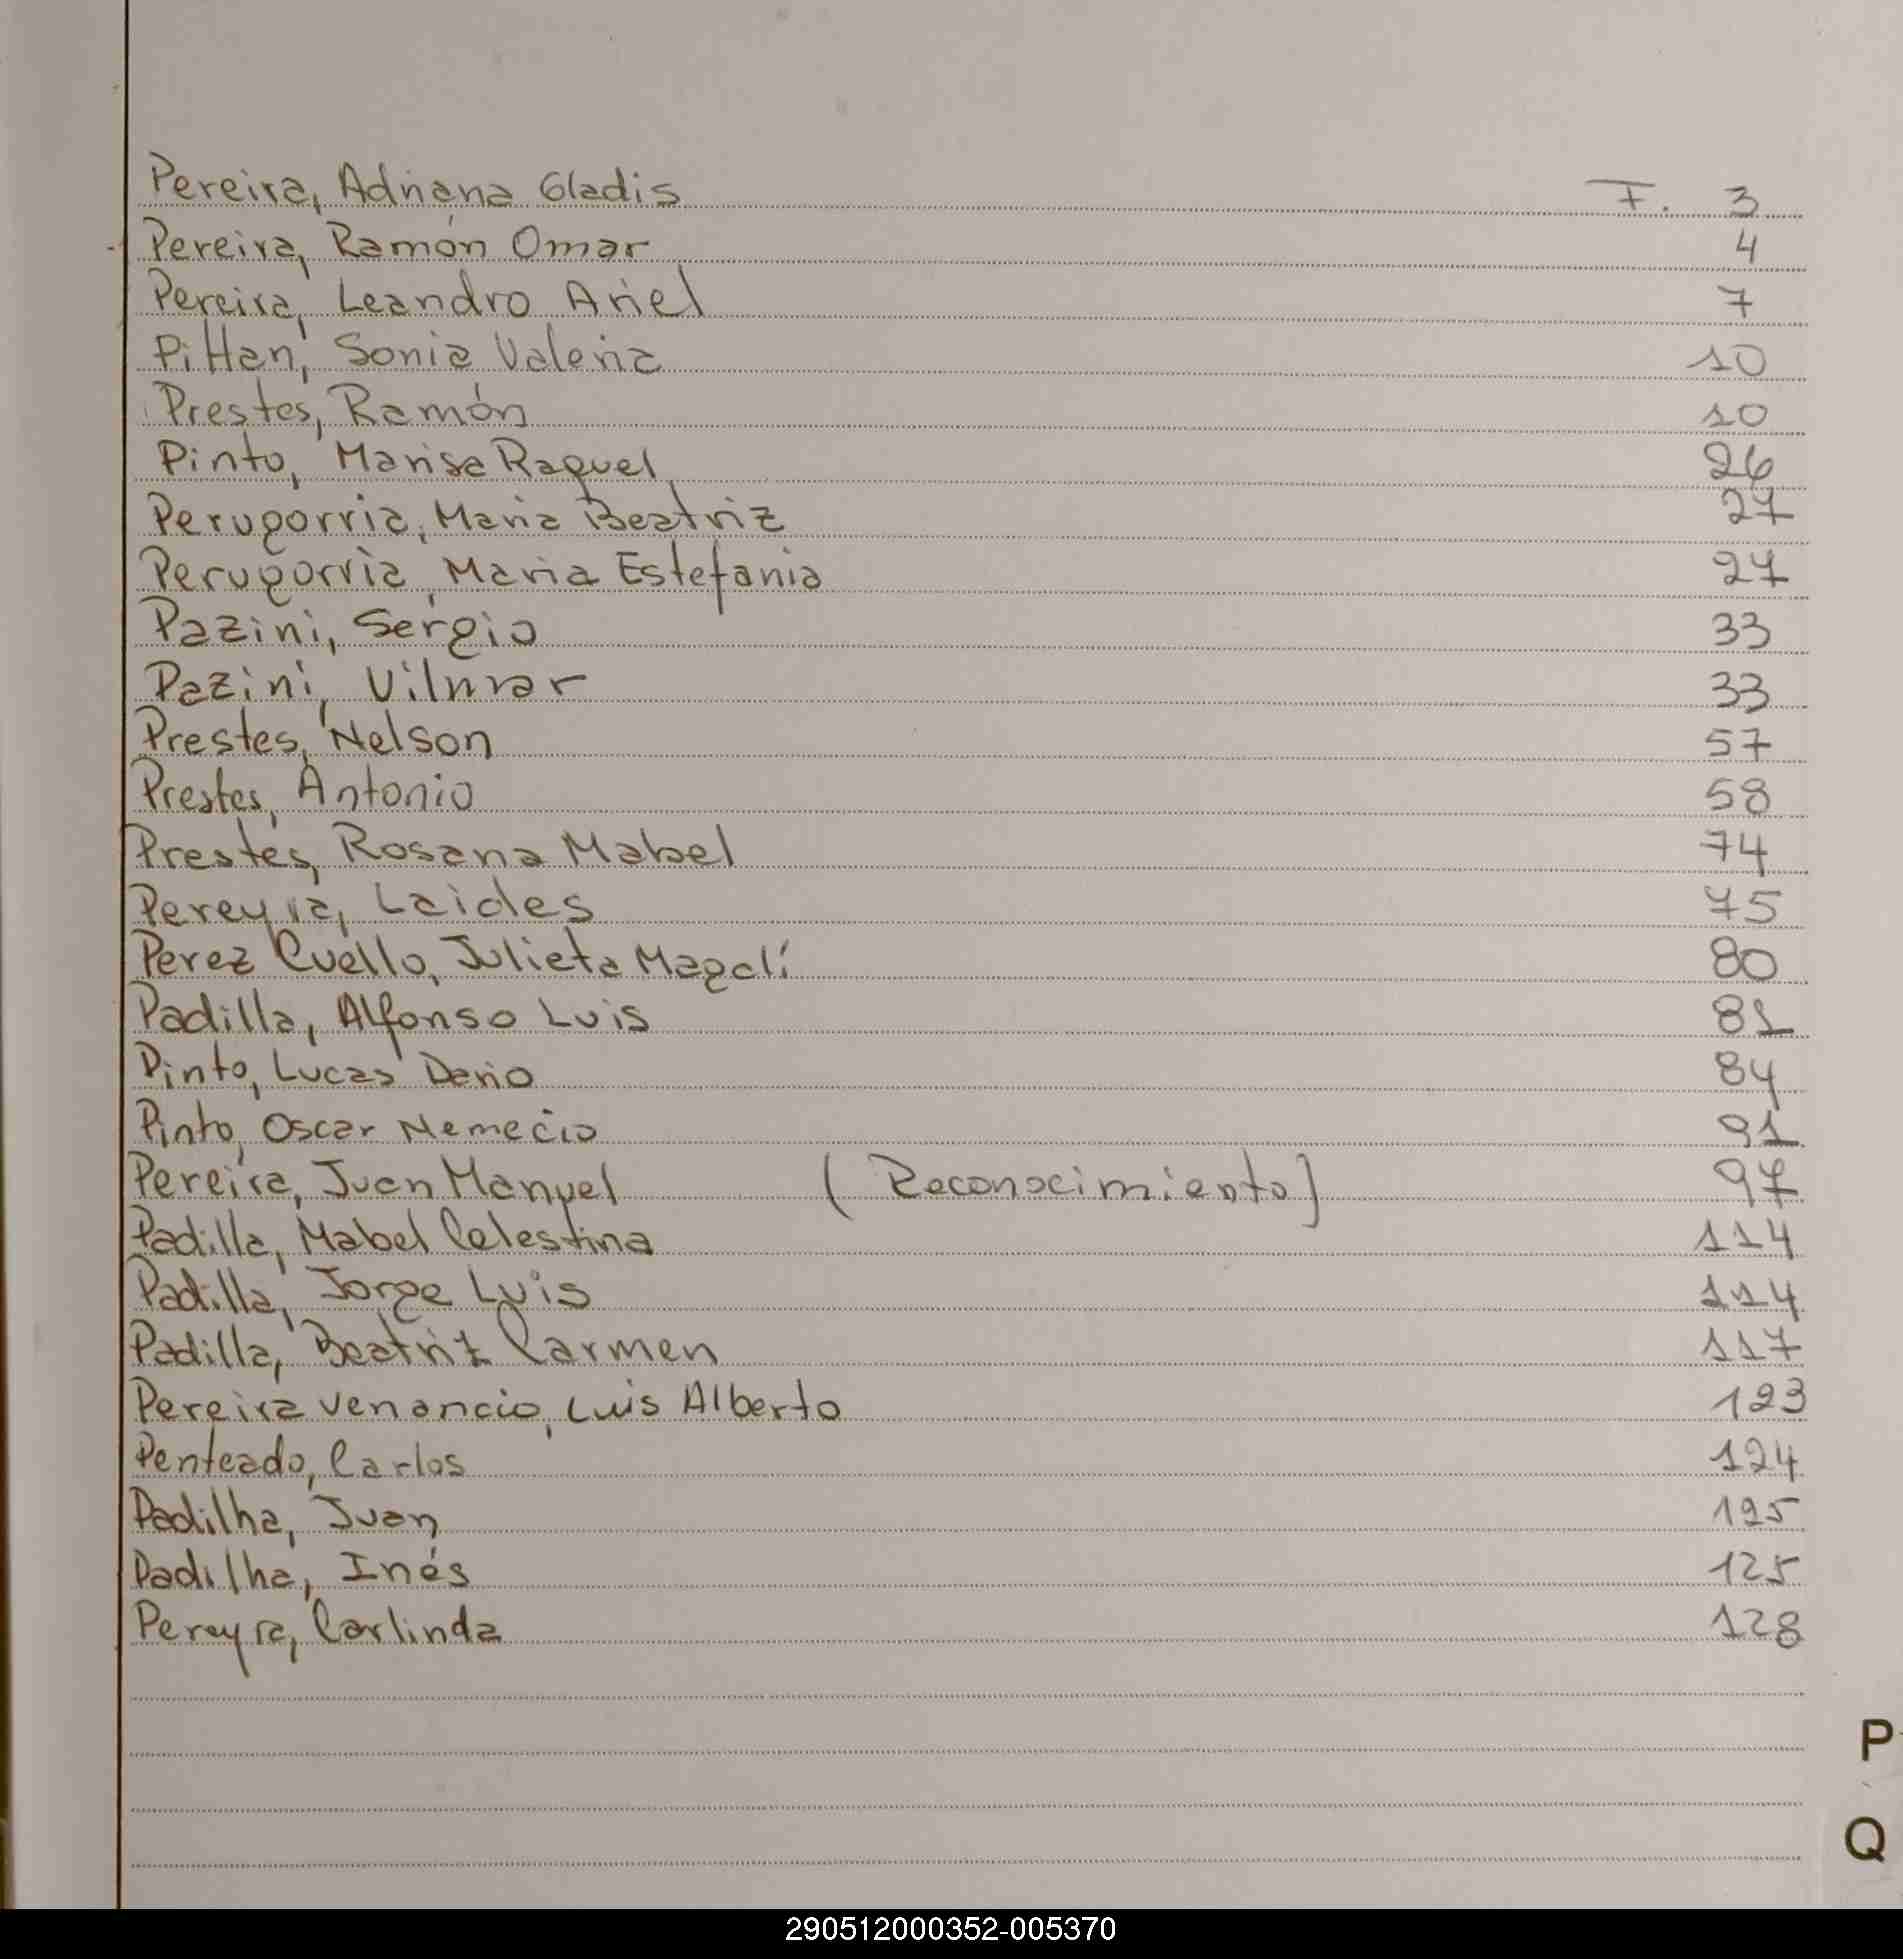 Pereira, Adriana Gladis F. 3
Pereira, Ramón Omar 4
Pereira, Leandro Ariel 7
Pittan, Sonia Valeria 10
Prestes, Ramón 10
Pinto, Marisa Raquel 26
Perugorria, Maria Beatriz 27
Perugorria, Maria Estefania 27
Pazini, Sergio 33
Pazini, Vilmar 33
Prestes, Nelson 57
Prestes, Antonio 58
Prestes, Rosana Mabel 74
Pereyra, Laides 75
Perez Cuello, Julieta Magalí 80
Padilla, Alfonso Luis 81
Pinto, Lucas Dario 84
Pinto, Oscar Nemecio 91
Pereira, Juan Manuel (Reconocimiento) 97
Padilla, Mabel Celestina 114
Padilla, Jorge Luis 114
Padilla, Beatriz Carmen 117
Pereira Venancio, Luis Alberto 123
Penteado, Carlos 124
Padilha, Juan 125
Padilha, Inés 125
Pereyra, Carlinda 128
P
Q
290512000352-005370